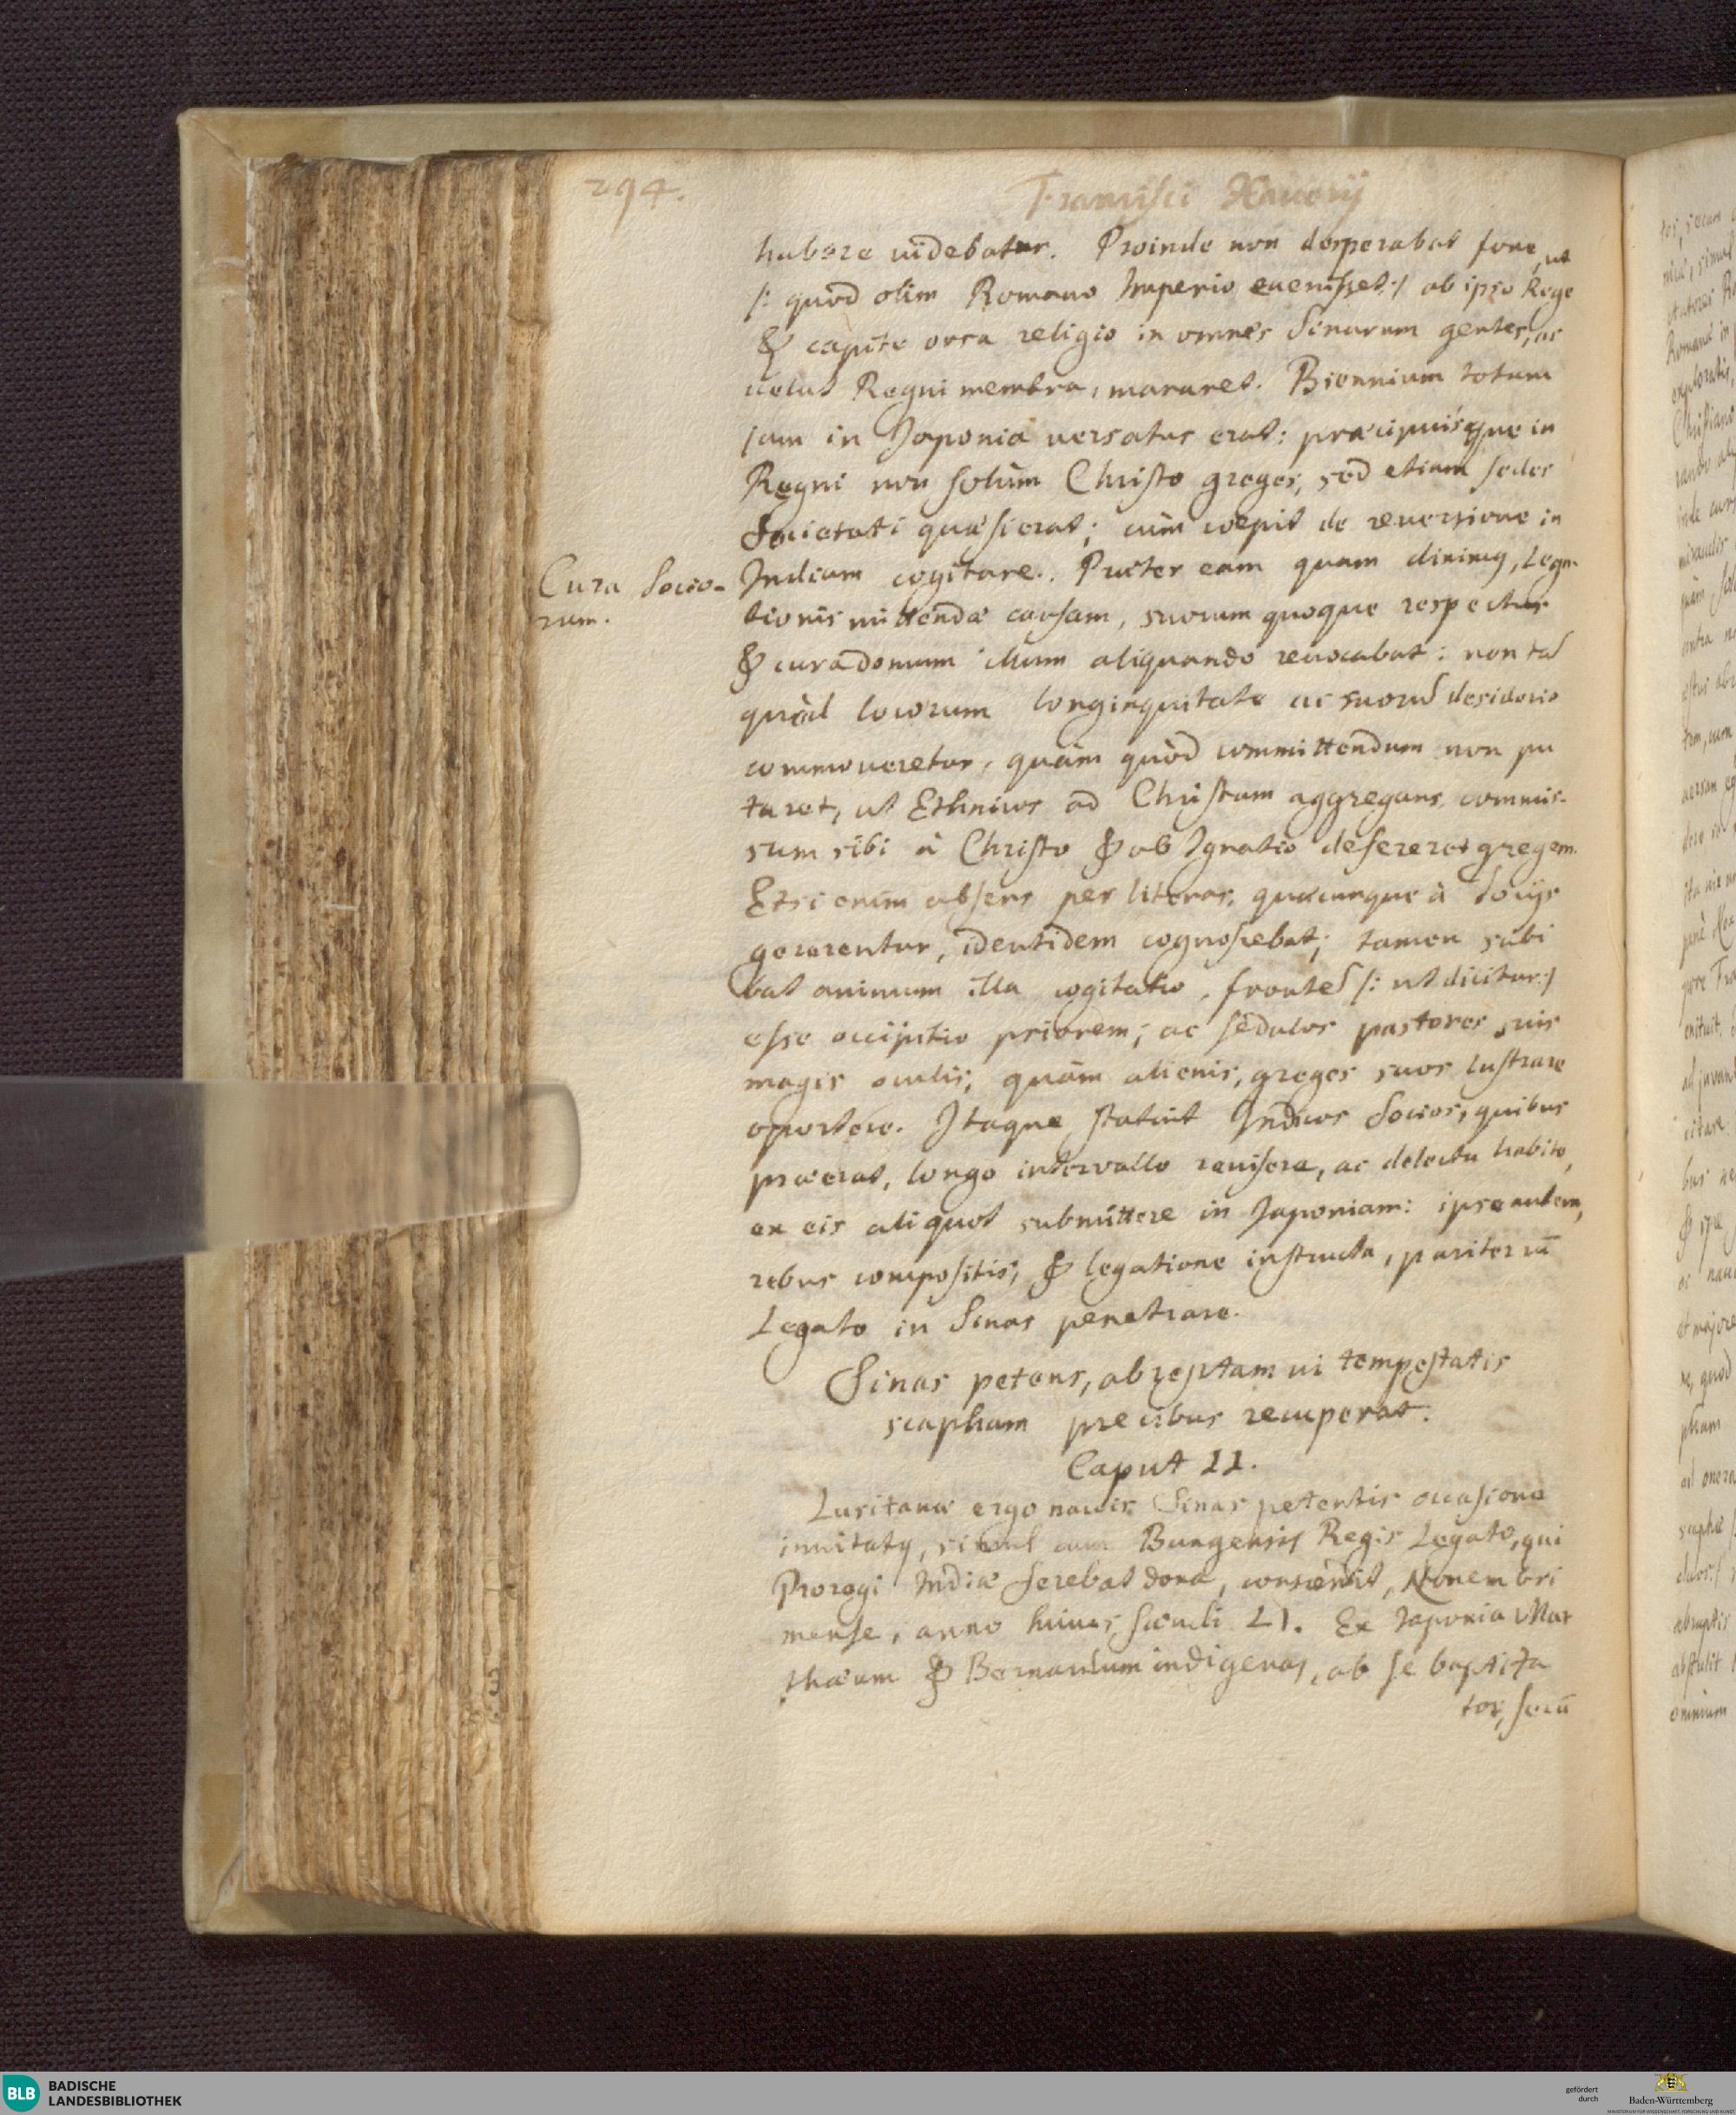 294.
Francisci Xauerij
habere uidebatur. Proinde non desperabat fore, ut
/: quod olim Romano Imperio euenisset :/ ab ipso Rege
& capite orsa religio in omnes Sinarum gentes, ac
uelut Regni membra, manaret. Biennium totum
jam in Japonia uersatus erat: præcipuisque in
Regni non solùm Christo greges, sed etiam sedes
Societati quæsierat; cùm cœpit de reuersione in
Cura Socio-
rum.
Indiam cogitare. Præter eam quam diximus, Lega-
tionis mittendæ causam, suorum quoque respectus
& cura domum illum aliquando reuocabat: non tã
quòd locorum longinquitate ac suorũ desiderio
commoueretur, quàm quòd committendum non pu
taret, ut Ethnicos ad Christum aggregans, commis-
sum sibi à Christo & ab Ignatio desereret gregem.
Etsi enim absens per literas, quæcunque à Socijs
gererentur, identidem cognoscebat; tamen subi
bat animum illa cogitatio, frontẽ /: ut dicitur :/
esse occipitio priorem; ac sedulos pastores suis
magis oculis, quàm alienis, greges suos lustrare
oportere. Itaque statuit Indicos Socios, quibus
præerat, longo interuallo reuisere, ac delectu habito,
ex eis aliquot submittere in Japoniam: ipse autem,
rebus compositis, & legatione instructa, pariter cũ
Legato in Sinas penetrare.
Sinas petens, abreptam ui tempestatis
scapham precibus recuperat.
Caput 11.
Lusitanæ ergo nauis Sinas petentis occasione
inuitatus, simul cum Bungensis Regis Legato, qui
Proregi Indiæ ferebat dona, conscendit, Nouembri
mense, anno huius sæculi 51. Ex Japonia Mat
thæum & Bernardum indigenas, ab se baptiza
tos, secũ
BLB BADISCHE
LANDESBIBLIOTHEK
gefördert
durch
Baden-Württemberg